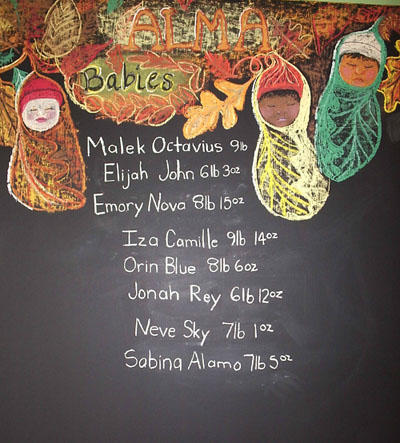 ALMA
Babies
Malek Octavius 9lb
Elijah John 6lb 3oz
Emory Nova 8lb 15oz
Iza Camille 9lb 14oz
Orin Blue 8lb 6oz
Jonah Rey 6lb 12oz
Neve Sky 7lb 1oz
Sabina Alamo 7lb 5oz